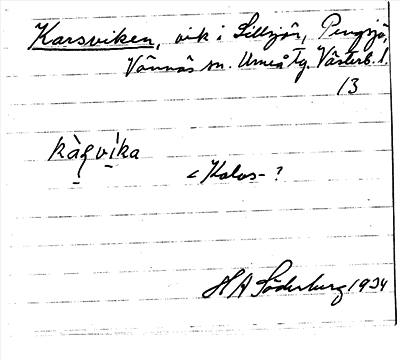 Karsviken, vik i Lillsjön, Pengsjö,
Vännäs sn. Umeå tg. Västerb. l.
13
kàʂvìka
< Kalvs- ?
H A Söderberg 1934